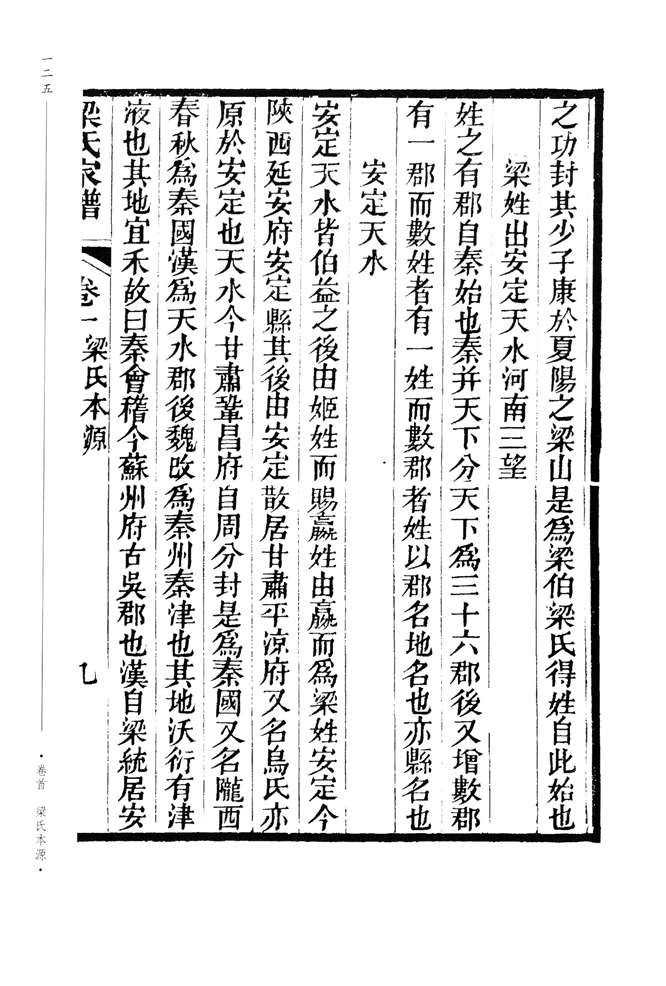 之功封其少子康於夏陽之梁山是爲梁伯梁氏得姓自此始也
梁姓出安定天水河南三望
姓之有郡自秦始也秦并天下分天下爲三十六郡後又增數郡
有一郡而數姓者有一姓而數郡者姓以郡名地名也亦縣名也
安定天水
安定天水皆伯益之後由姬姓而賜嬴姓由嬴而爲梁姓安定今
陝西延安府安定縣其後由安定散居甘肅平涼府又名烏氏亦
原於安定也天水今甘肅鞏昌府自周分封是爲秦國又名隴西
春秋爲秦國漢爲天水郡後魏改爲秦州秦津也其地沃衍有津
液也其地宜禾故曰秦會稽今蘇州府古吳郡也漢自梁統居安
梁氏家譜
卷一 梁氏本源
九
一二五
·卷首 梁氏本源·